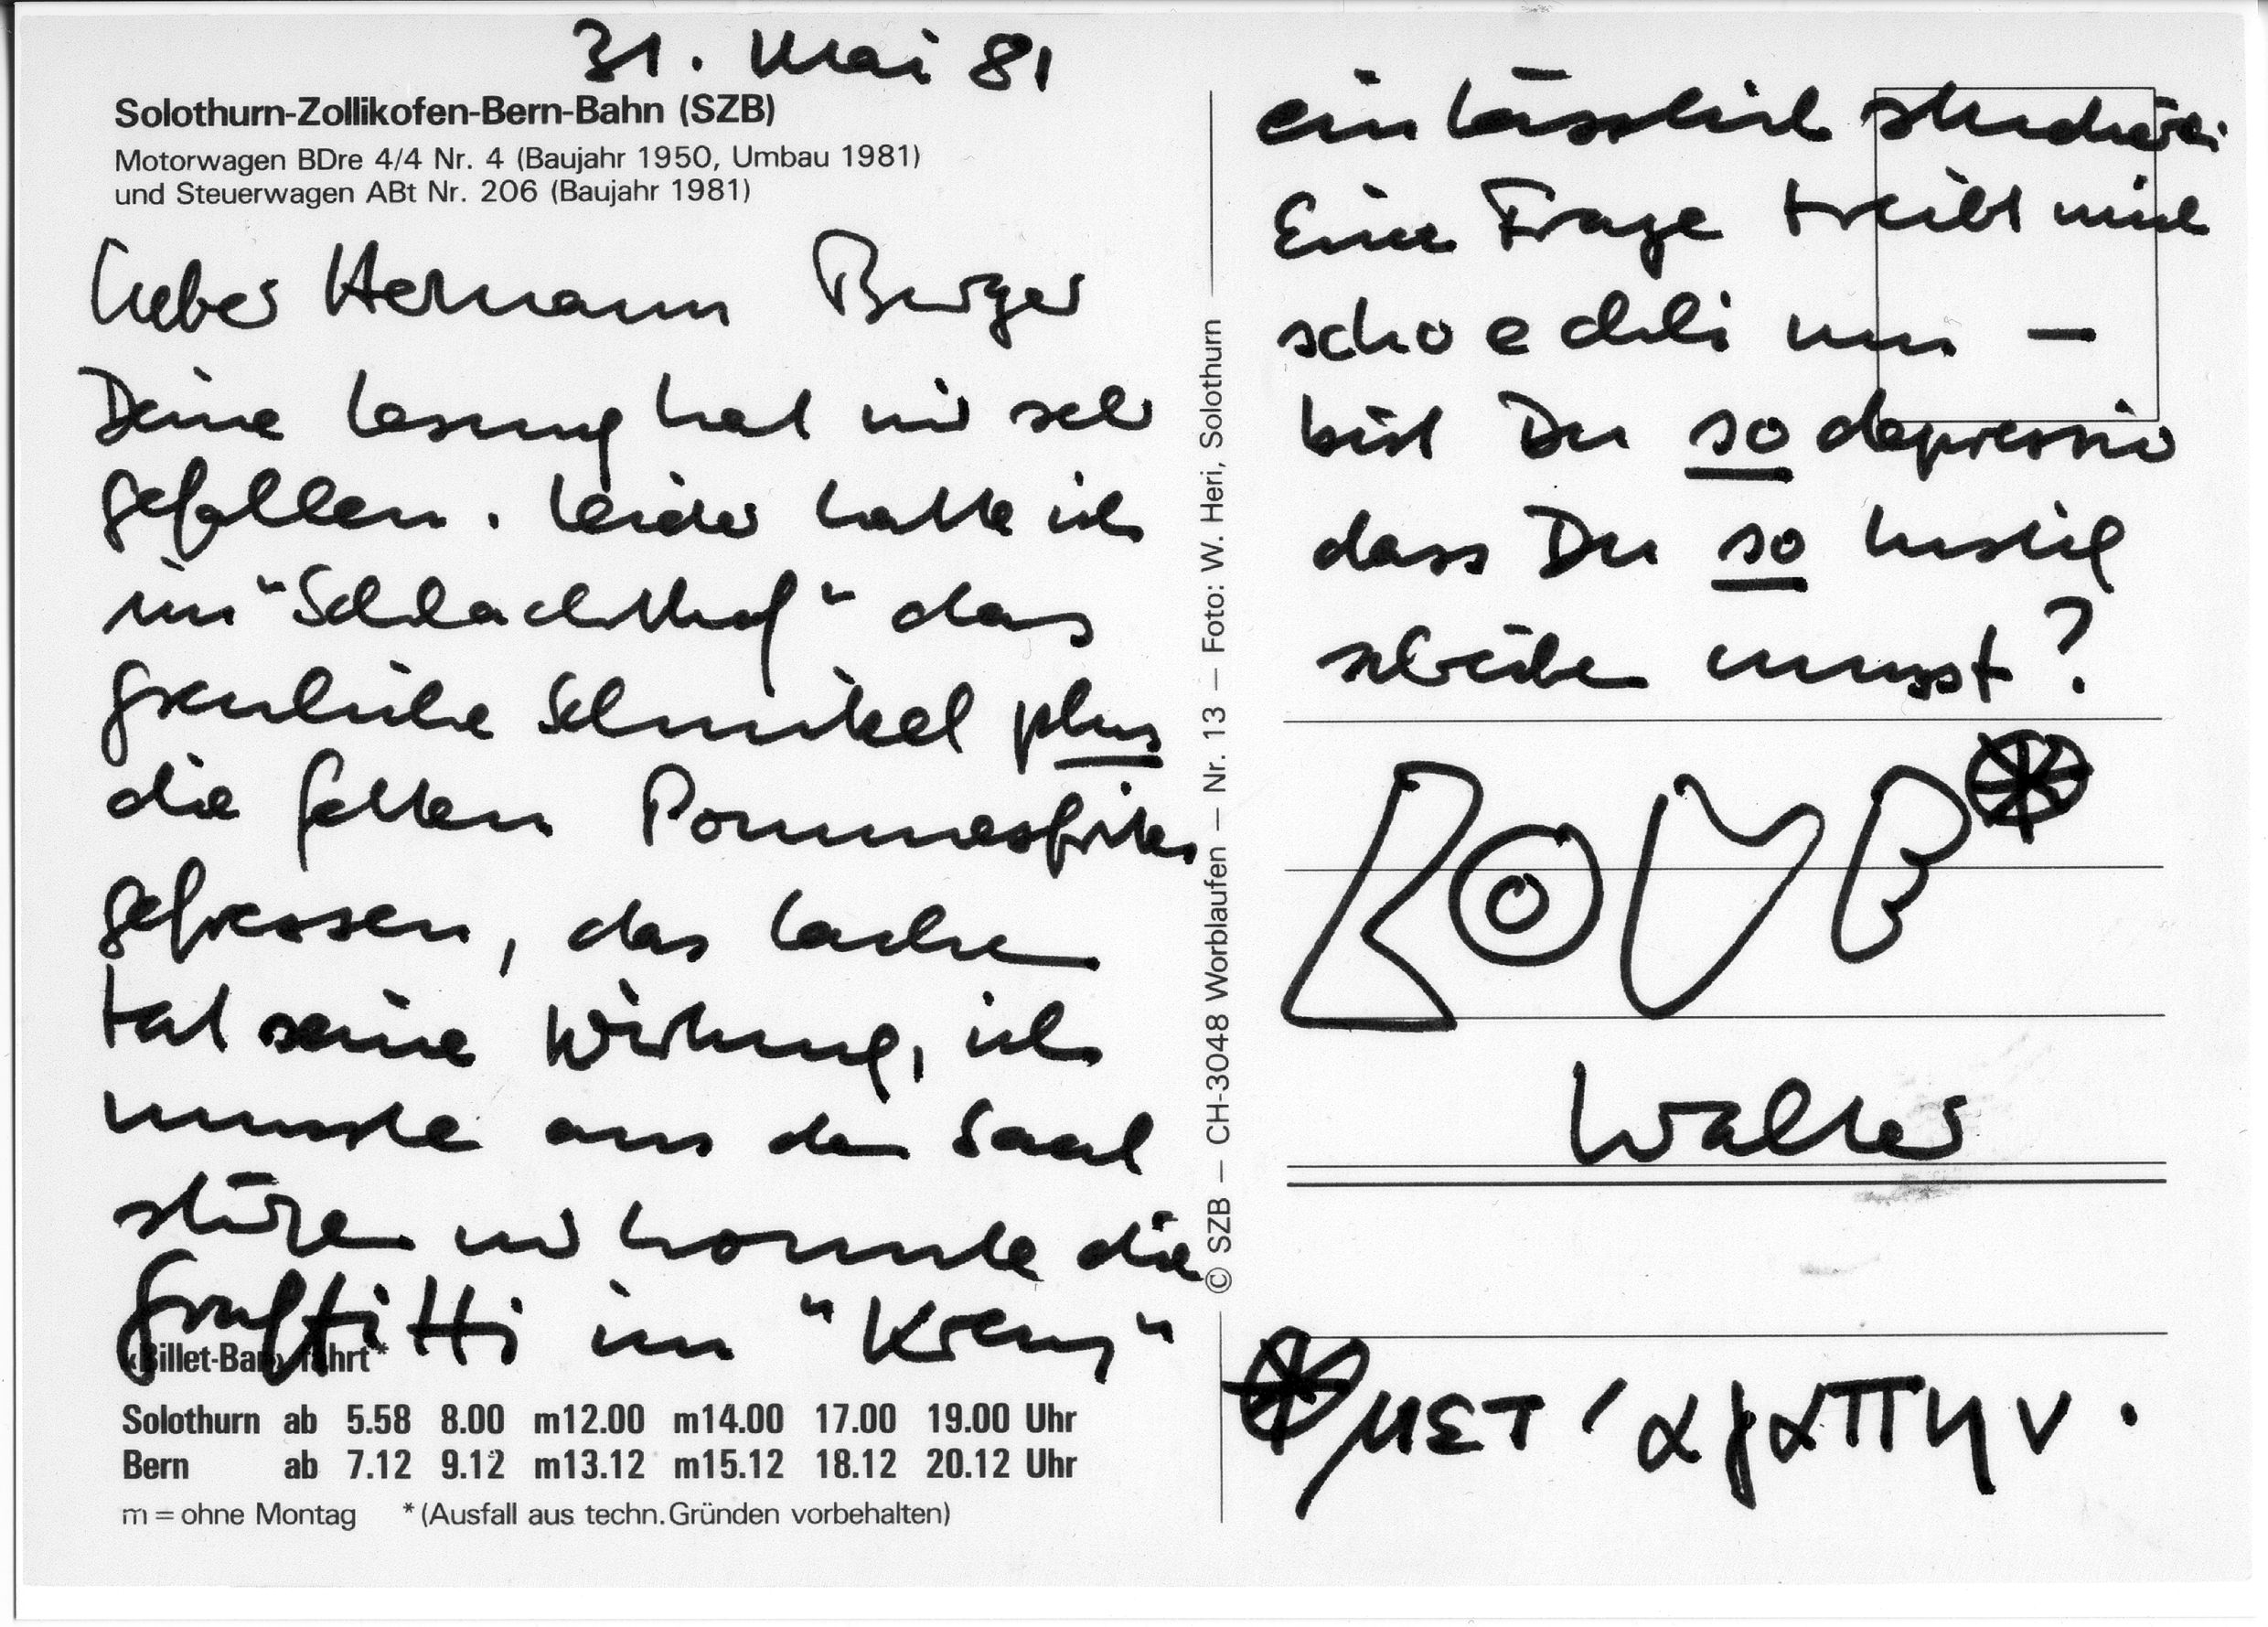 31. Mai 81
Solothurn-Zollikofen-Bern-Bahn (SZB)
Motorwagen BDre 4/4 Nr. 4 (Baujahr 1950, Umbau 1981)
und Steuerwagen ABt Nr. 206 (Baujahr 1981)
Lieber Hermann Burger
Deine Lesung hat mir sehr
gefallen. Leider hatte ich
im "Schlachthof" das
greuliche Schnitzel plus
die fetten Pommesfrites
gefressen, das Lachen
tat seine Wirkung, ich
musste aus dem Saal
stürzen und konnte die
Graffitti im "Kreuz"
«Billet-Bar» fährt*
Solothurn ab 5.58 8.00 m12.00 m14.00 17.00 19.00 Uhr
Bern ab 7.12 9.12 m13.12 m15.12 18.12 20.12 Uhr
m = ohne Montag *(Ausfall aus techn. Gründen vorbehalten)
© SZB – CH-3048 Worblaufen – Nr. 13 – Foto: W. Heri, Solothurn
einlässlich studieren.
Eine Frage treibt mich
scho e chli um –
bist Du so depressiv
dass Du so lustig
schreiben musst?
LOVE
Walter
ΜΕΤ' αγαπην.